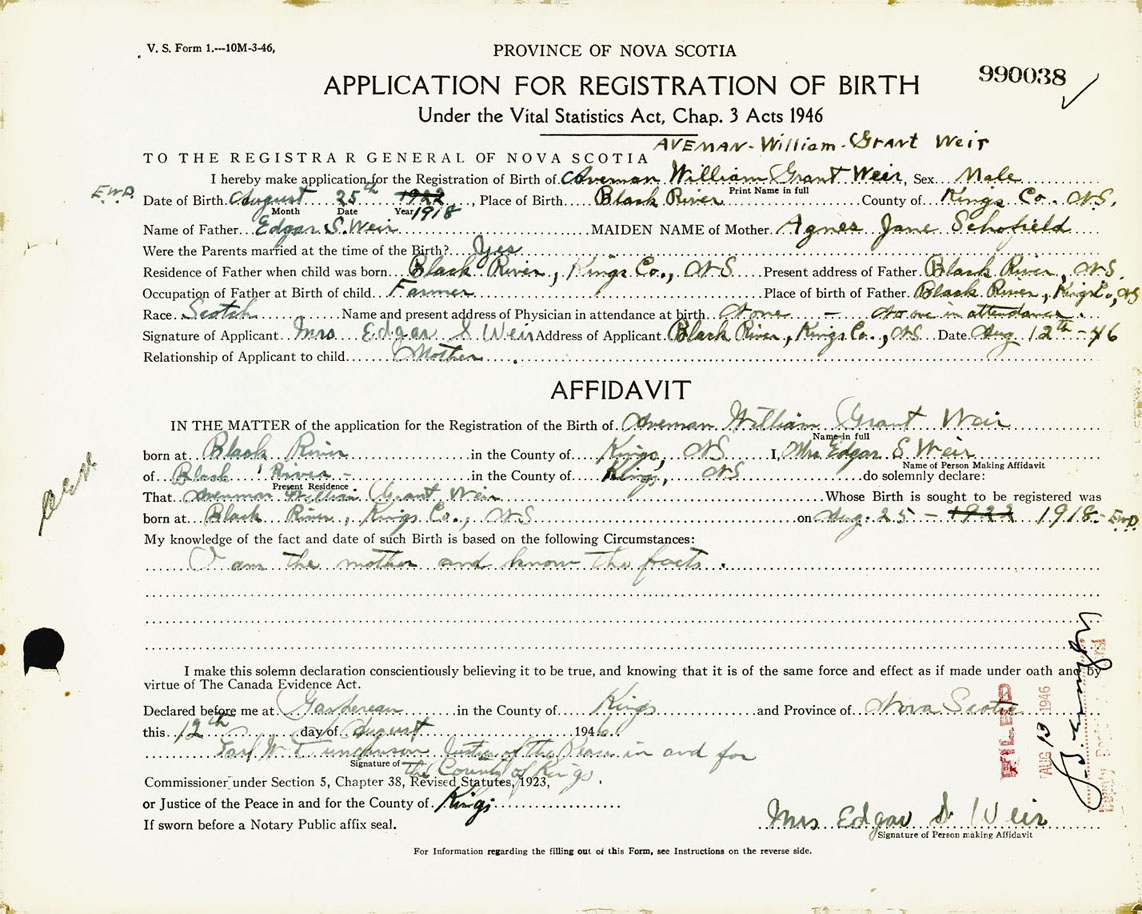 V. S. Form 1.---10M-3-46,
PROVINCE OF NOVA SCOTIA
990038 ✓
APPLICATION FOR REGISTRATION OF BIRTH
Under the Vital Statistics Act, Chap. 3 Acts 1946
AVEMAN-William-Grant Weir
TO THE REGISTRAR GENERAL OF NOVA SCOTIA
I hereby make application for the Registration of Birth of Aveman William Grant Weir, Sex Male
Print Name in full
EWD. Date of Birth August 25th 1922, Place of Birth Black River County of Kings Co. NS.
Month Date Year 1918
Name of Father Edgar S. Weir MAIDEN NAME of Mother Agnes Jane Schofield
Were the Parents married at the time of the Birth? Yes
Residence of Father when child was born Black River, Kings Co., NS Present address of Father Black River, NS.
Occupation of Father at Birth of child Farmer Place of birth of Father Black River, Kings Co, NS
Race Scotch Name and present address of Physician in attendance at birth None - No one in attendance.
Signature of Applicant Mrs Edgar S Weir Address of Applicant Black River, Kings Co., NS Date Aug. 12th-46
Relationship of Applicant to child Mother
AFFIDAVIT
IN THE MATTER of the application for the Registration of the Birth of Aveman William Grant Weir
Name in full
born at Black River in the County of Kings, NS I, Mrs Edgar S Weir
Name of Person Making Affidavit
of Black River - in the County of Kings, NS do solemnly declare:
Present Residence
That Avenman William Grant Weir Whose Birth is sought to be registered was
born at Black River, Kings Co., NS on Aug. 25 - 1922 1918- EWD.
My knowledge of the fact and date of such Birth is based on the following Circumstances:
I am the mother and know the facts.
I make this solemn declaration conscientiously believing it to be true, and knowing that it is of the same force and effect as if made under oath and by
virtue of The Canada Evidence Act.
Declared before me at Gaspereau in the County of Kings and Province of Nova Scotia
this 12th day of August 1946.
Earl W. Justice of the Peace in and for
Signature of
the County of Kings.
Commissioner under Section 5, Chapter 38, Revised Statutes, 1923,
or Justice of the Peace in and for the County of Kings
If sworn before a Notary Public affix seal.
Mrs Edgar S Weir
Signature of Person making Affidavit
FILED
AUG 13 1946
For Information regarding the filling out of this Form, see Instructions on the reverse side.